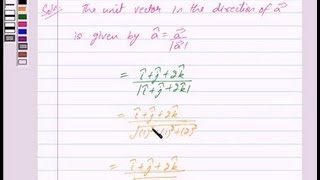 Sol:- The unit vector in the direction of a⃗
is given by â = a⃗ / |a⃗|
= î+ĵ+2k̂ / |î+ĵ+2k̂|
= î+ĵ+2k̂ / √(1)²+(1)²+(2)²
= î+ĵ+2k̂